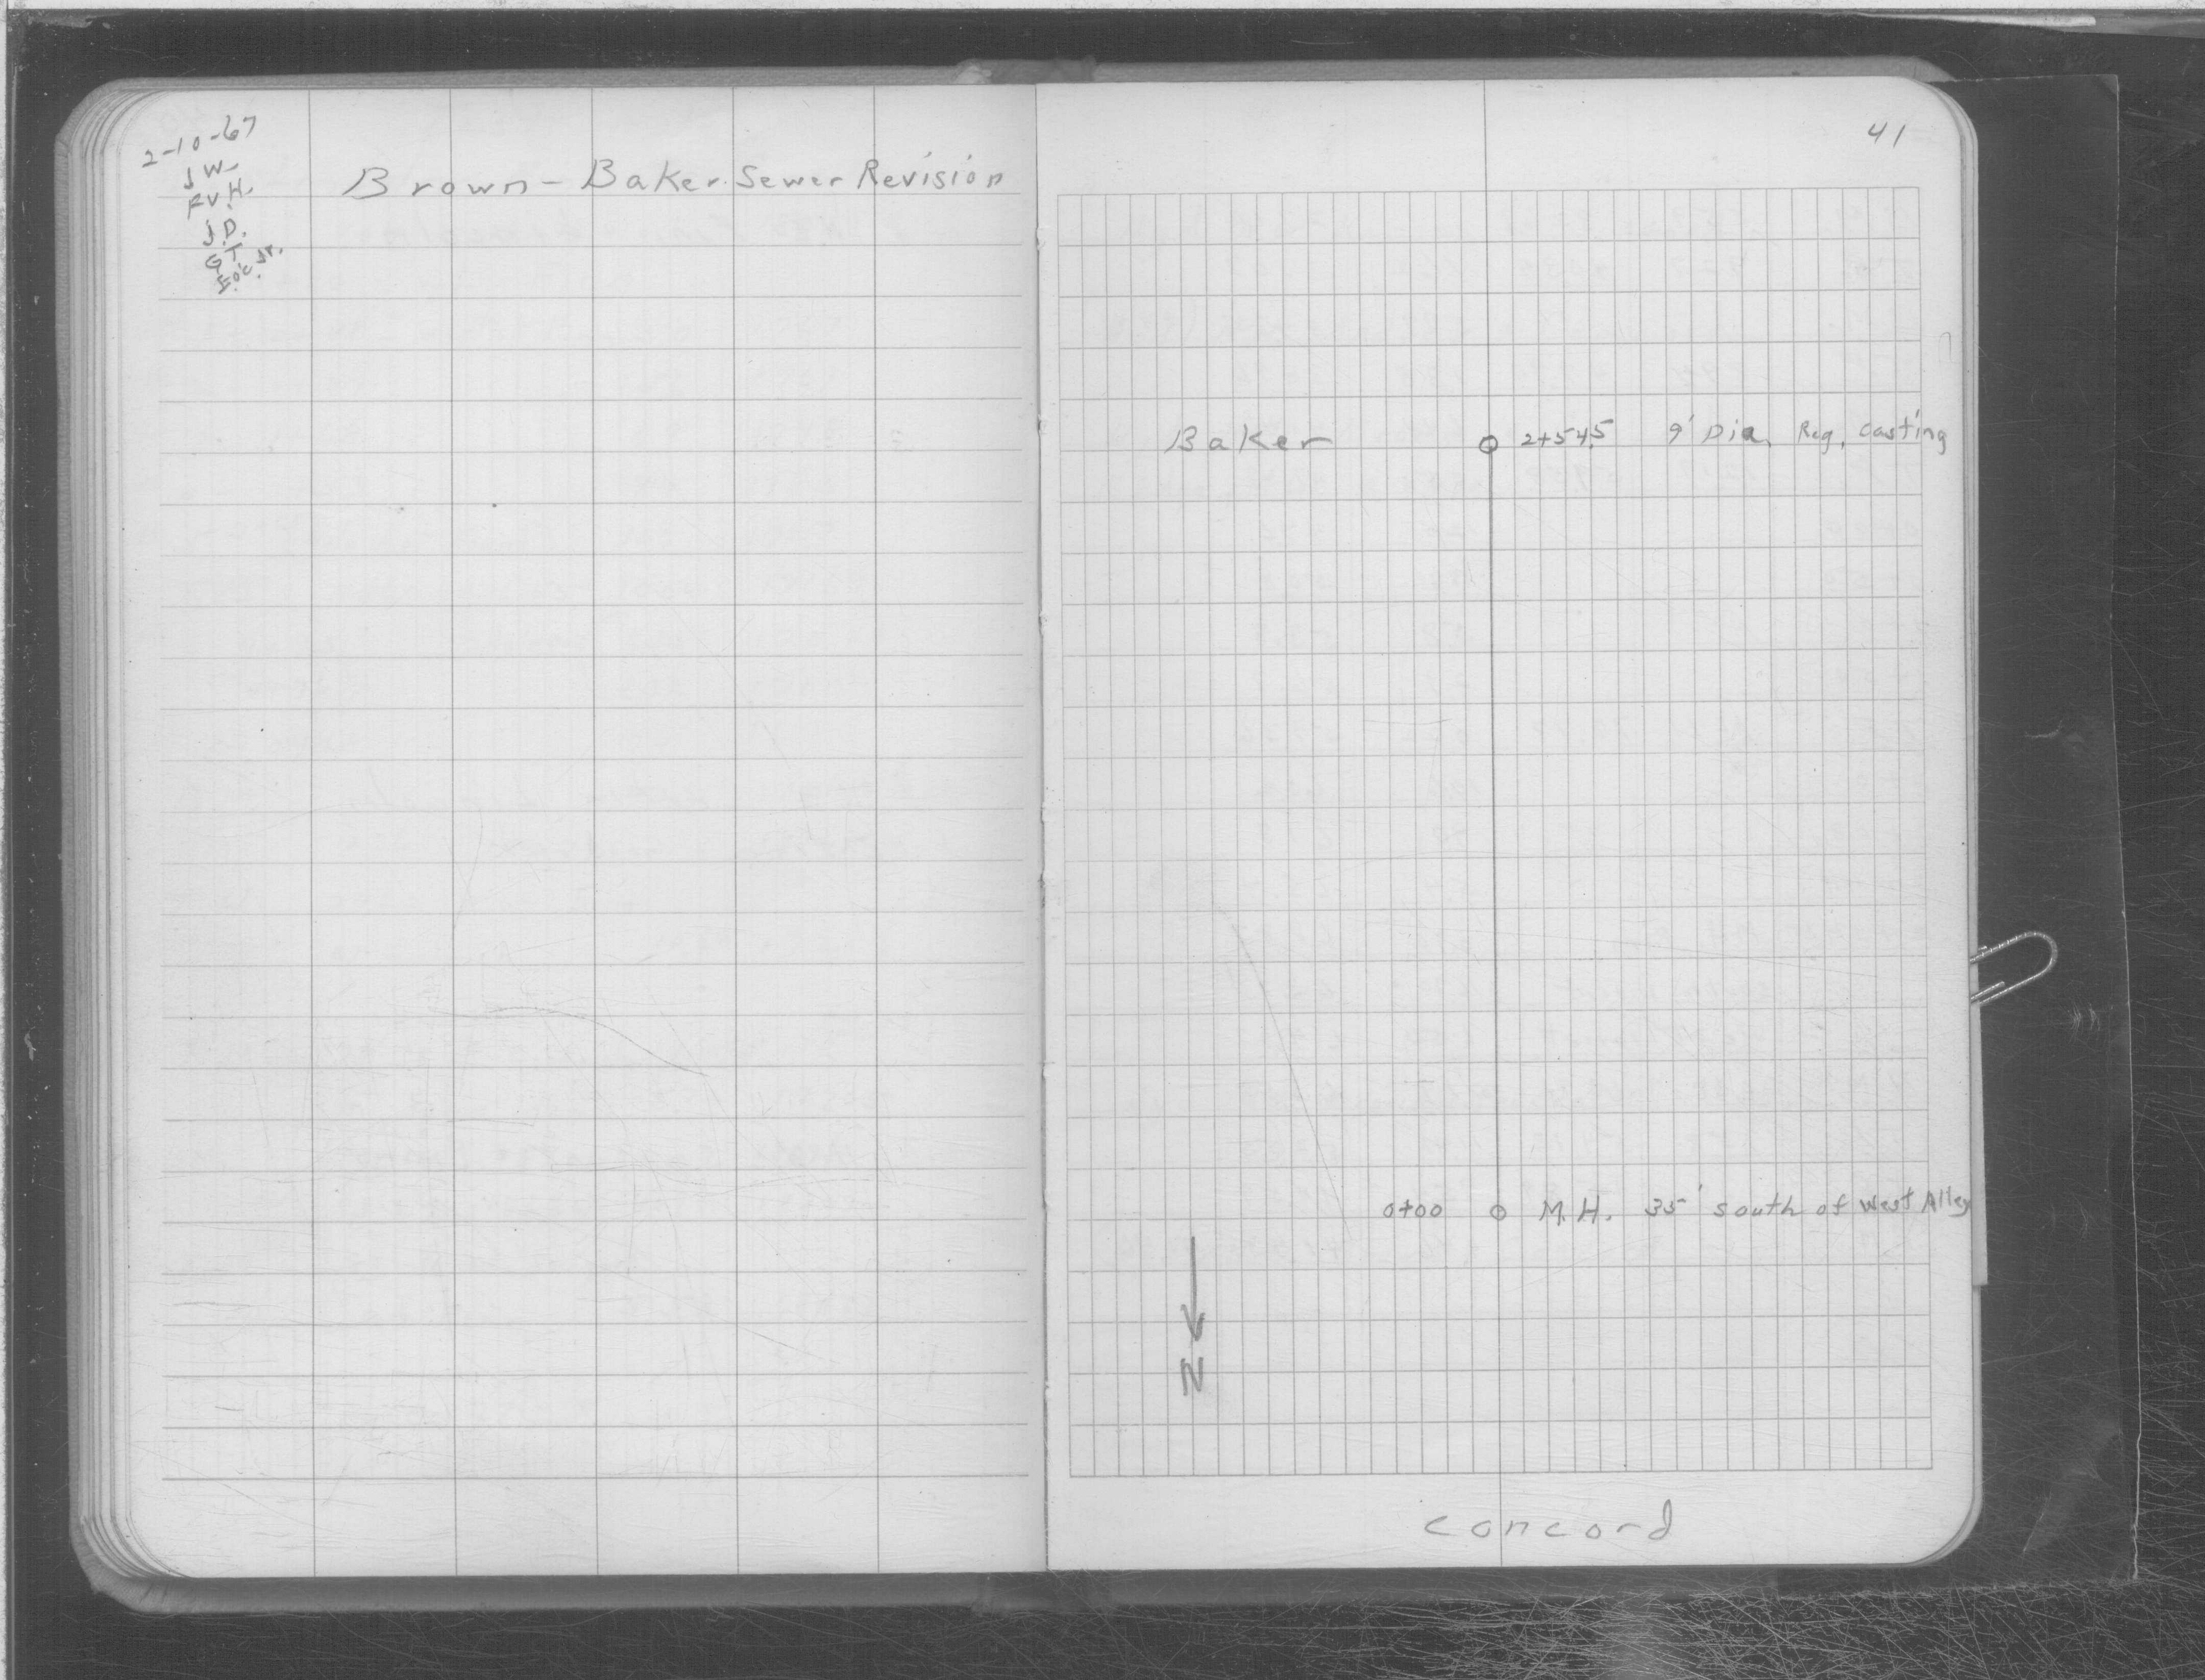 2-10-67
J W.
F.V.H.
J.D.
G T
E.O'C. Jr.
Brown - Baker Sewer Revision
41
Baker 2+54.5 9' Dia. Reg. casting
0+00 M.H. 35' south of West Alley
N
concord